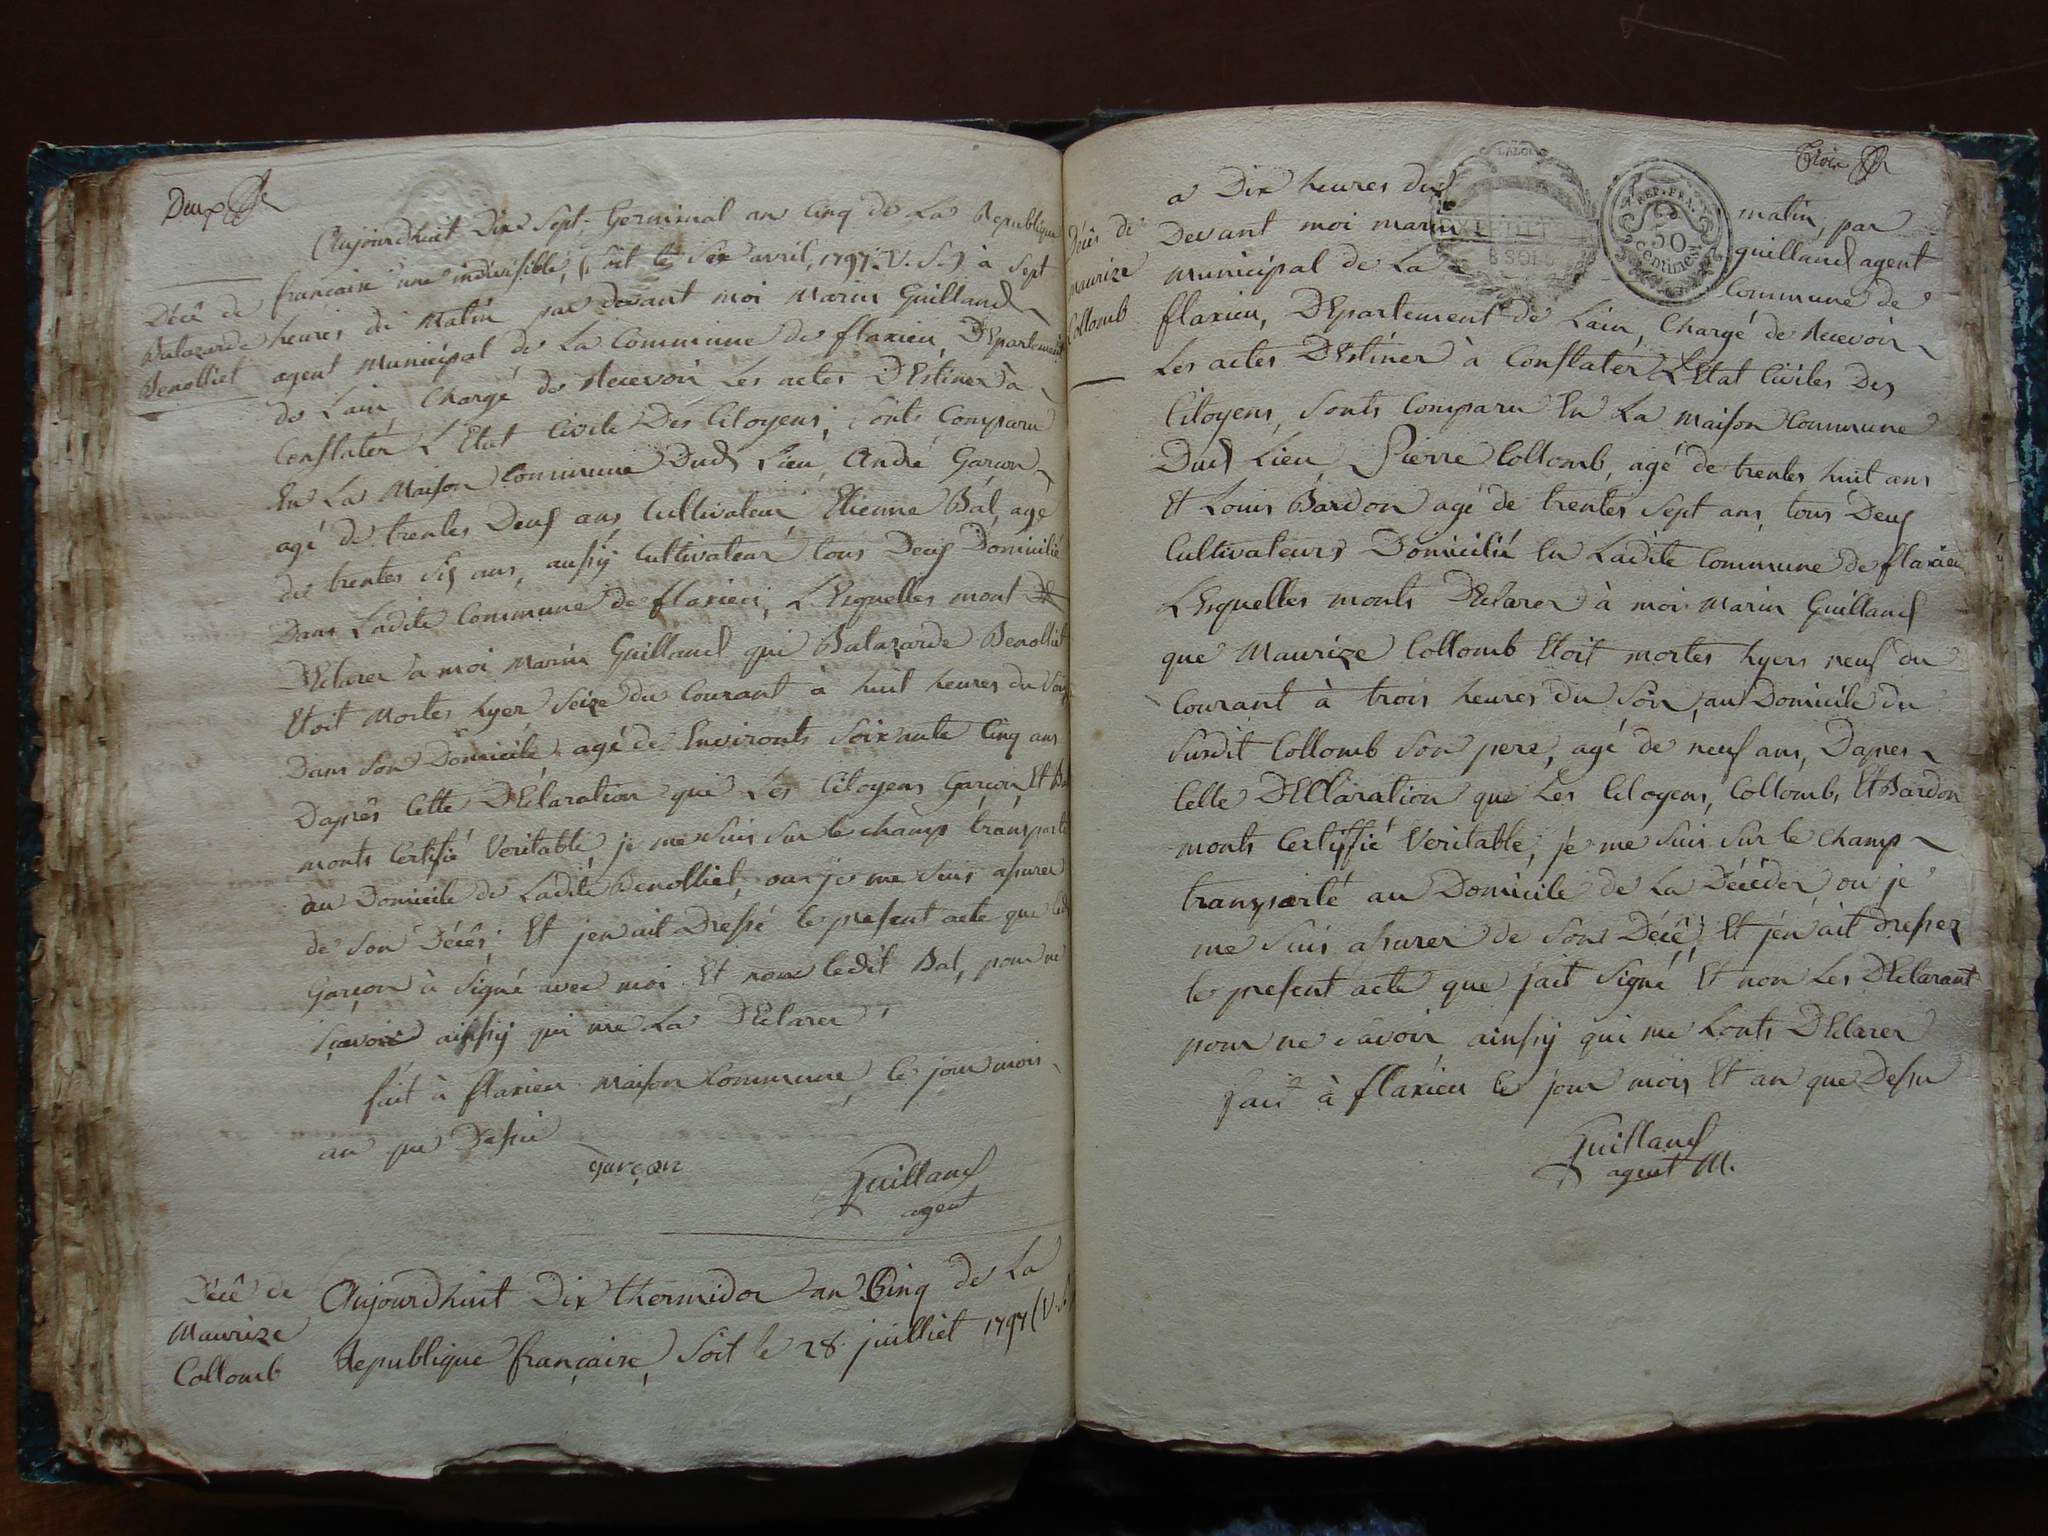 Deux
Aujourdhuit Dix Sept, Germinal an Cinq de La Republique
francaise une indivisible, (Soit le Six avril, 1797. V. S.) à Sept
Décê de
Balazarde
Benolliet
heures du Matin par devant moi Marin Guilland
agent Municipal de La Commune de flaxieu, DEpartement
de Lain, Chargé de Recevoir Les actes DEstiner à
Constater L'Etat Civile Des Citoyens, Sonts Comparu
En La Maison Commune Dud Lieu, André Garçon
agé de trentes Deux ans, Cultivateur, Etienne Bal, agé
de trentes Six ans, aussÿ Cultivateur tous Deux Domicilié
Dans Ladite Commune de flaxieu, LEsquelles mont
DEclarer à moi Marin Guilland que Balazarde Benolliet
Etoit Mortes hyer Seize du Courant à huit heures du Soir
Dans Son Domicile agé de Environts Soixante Cinq ans
Daprês Cette DEclaration que Les Citoyens Garçon Et Bal
monts Certifié Veritable je me Suis Sur le champs transporté
au Domicile de Ladite Benolliet, ou je me Suis assurer
de Son Décês, Et jen ait Dressé le present acte que led
Garçon à Signé avec moi Et nom ledit Bal, pour ne
Sçavoir ainsÿ qui me La DEclarer
fait à flaxieu Maison Commune le jour mois
an que Dessu
garçon
Guilland
agent
Décê de
Maurize
Collomb
Aujourdhuit Dix thermidor an Cinq de La
Republique française, Soit le 28 juilliet 1797 (V. S.
Trois
Décês de
Maurize
Collomb
LA LOI
8 SOLS
REP. FRA.
50
Centimes
a Dix heures du matin, par
Devant moi marin guilland agent
Municipal de La Commune de
flaxieu, DEpartement de Lain, Chargé de Recevoir
Les actes DEstiner à Constater LEtat Civiles Des
Citoyens, Sonts Comparu En La maison Commune
Dud Lieu Pierre Collomb, agé de trentes huit ans
Et Louis Bardon agé de trentes Sept ans, tous Deux
Cultivateurs Domicilié En Ladite Commune de flaxieu
LEsquelles monts DEclarer à moi Marin Guilland
que Maurize Collomb Etoit mortes hyers neuf du
Courant à trois heures du Soir, au Domicile du
Susdit Collomb Son pere, agé de neuf ans, Dapres
Cette DEClaration que Les Citoyens, Collomb, Et Bardon
monts Certiffié Veritable, je me Suis Sur le Champ
transporté au Domicile de La Décéder, ou je
me Suis assurer de Son Décê, Et jén ait dresser
le present acte que jait Signé Et non Les DEclarant
pour ne Savoir ainsÿ qui me Lonts DEclarer
fait à flaxieu le jour mois Et an que Dessu
Guilland
agent M.